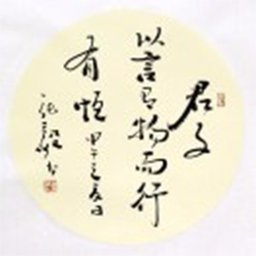 君子
以言有物而行
有恒甲午之夏日